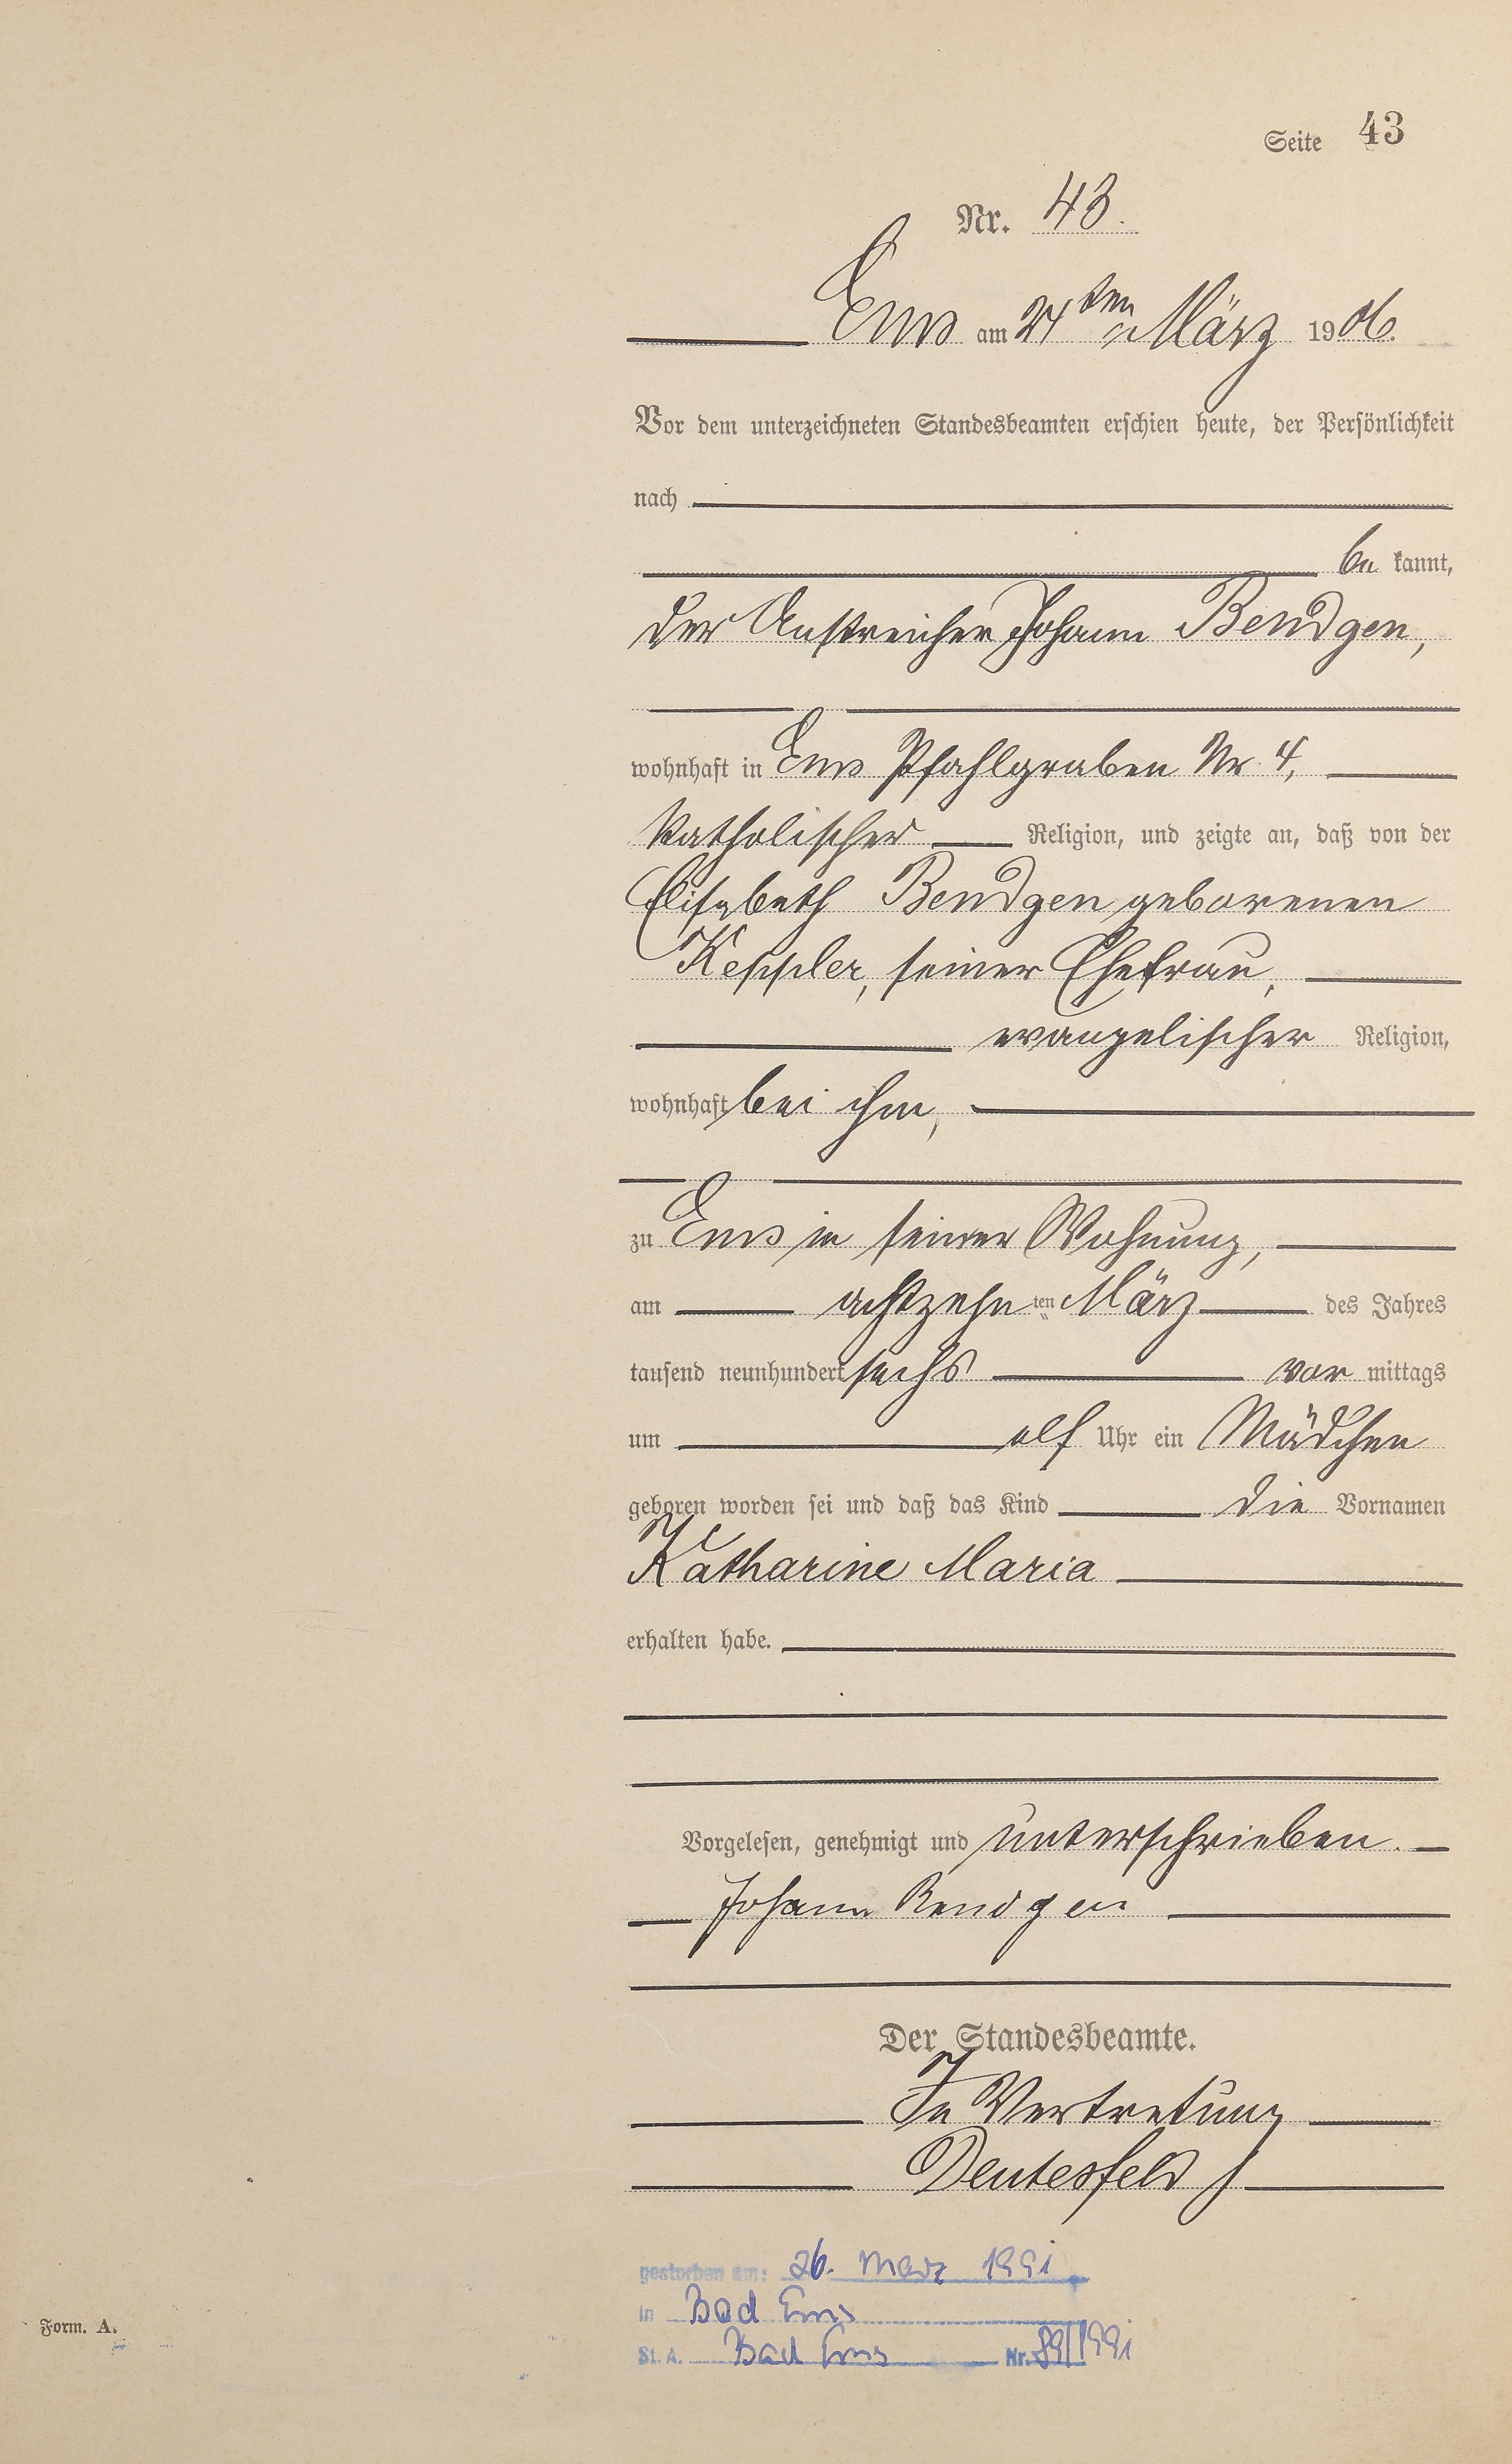 Seite 43
Nr. 43.
Ems am 24ten März 1906.
Vor dem unterzeichneten Standesbeamten erschien heute, der Persönlichkeit
nach
be kannt,
der Anstreicher Johann Bendgen,
wohnhaft in Ems Pfahlgraben Nr. 4,
katholischer Religion, und zeigte an, daß von der
Elisabeth Bendgen geborenen
Keppler, seiner Ehefrau,
evangelischer Religion,
wohnhaft bei ihm,
zu Ems in seiner Wohnung,
am achtzehnten März des Jahres
tausend neunhundert sechs vor mittags
um elf Uhr ein Mädchen
geboren worden sei und daß das Kind die Vornamen
Katharine Maria
erhalten habe.
Vorgelesen, genehmigt und unterschrieben.
Johann Bendgen
Der Standesbeamte.
In Vertretung
Deutesfeld
gestorben am: 26. März 1991
in Bad Ems
St. A. Bad Ems Nr. 89/1991
Form. A.